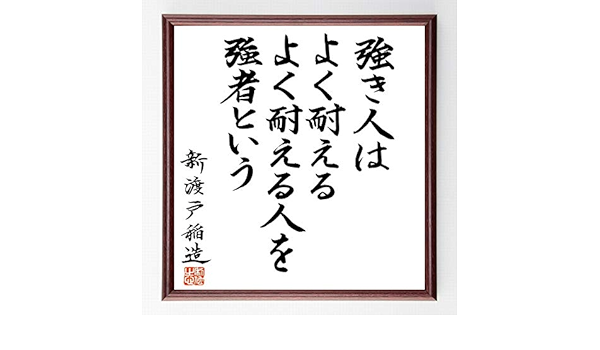 強き人は
よく耐える
よく耐える人を
強者という
新渡戸稲造